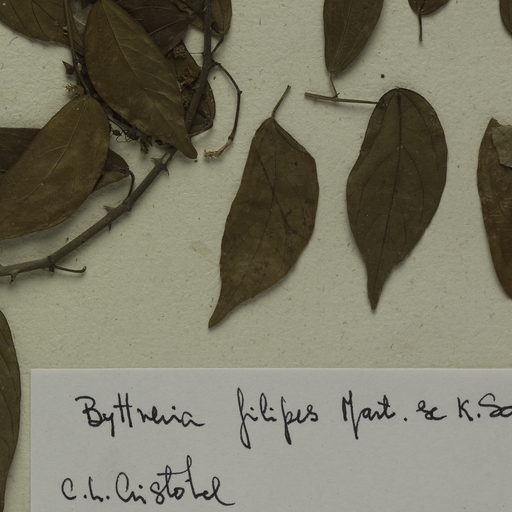 Byttneria filipes Mart. ex K. Sc
C. L. Cristóbal